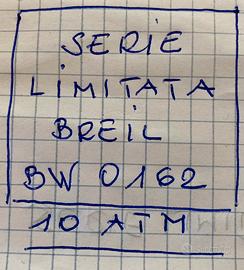 SERIE
LIMITATA
BREIL
BW 0162
10 ATM